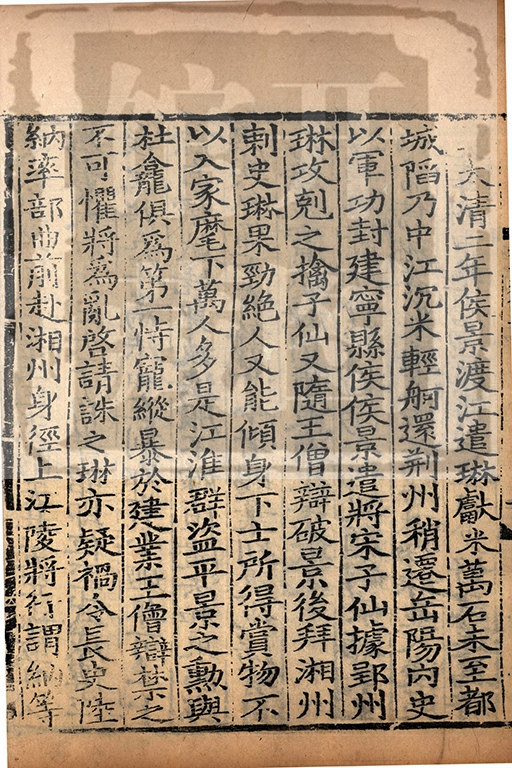 太清二年侯景渡江遣琳獻米萬石未至都
城䧟乃中江沉米輕舸還荆州稍遷岳陽內史
以軍功封建寧縣侯侯景遣將宋子仙據郢州
琳攻剋之擒子仙又隨王僧辯破景後拜湘州
剌史琳果勁絶人又能傾身下士所得賞物不
以入家麾下萬人多是江淮群盗平景之勲與
杜龕俱為第一恃寵縱暴於建業王僧辯禁之
不可懼將為亂啓請誅之琳亦疑禍令長史陸
納率部曲前赴湘州身徑上江陵將行謂納等